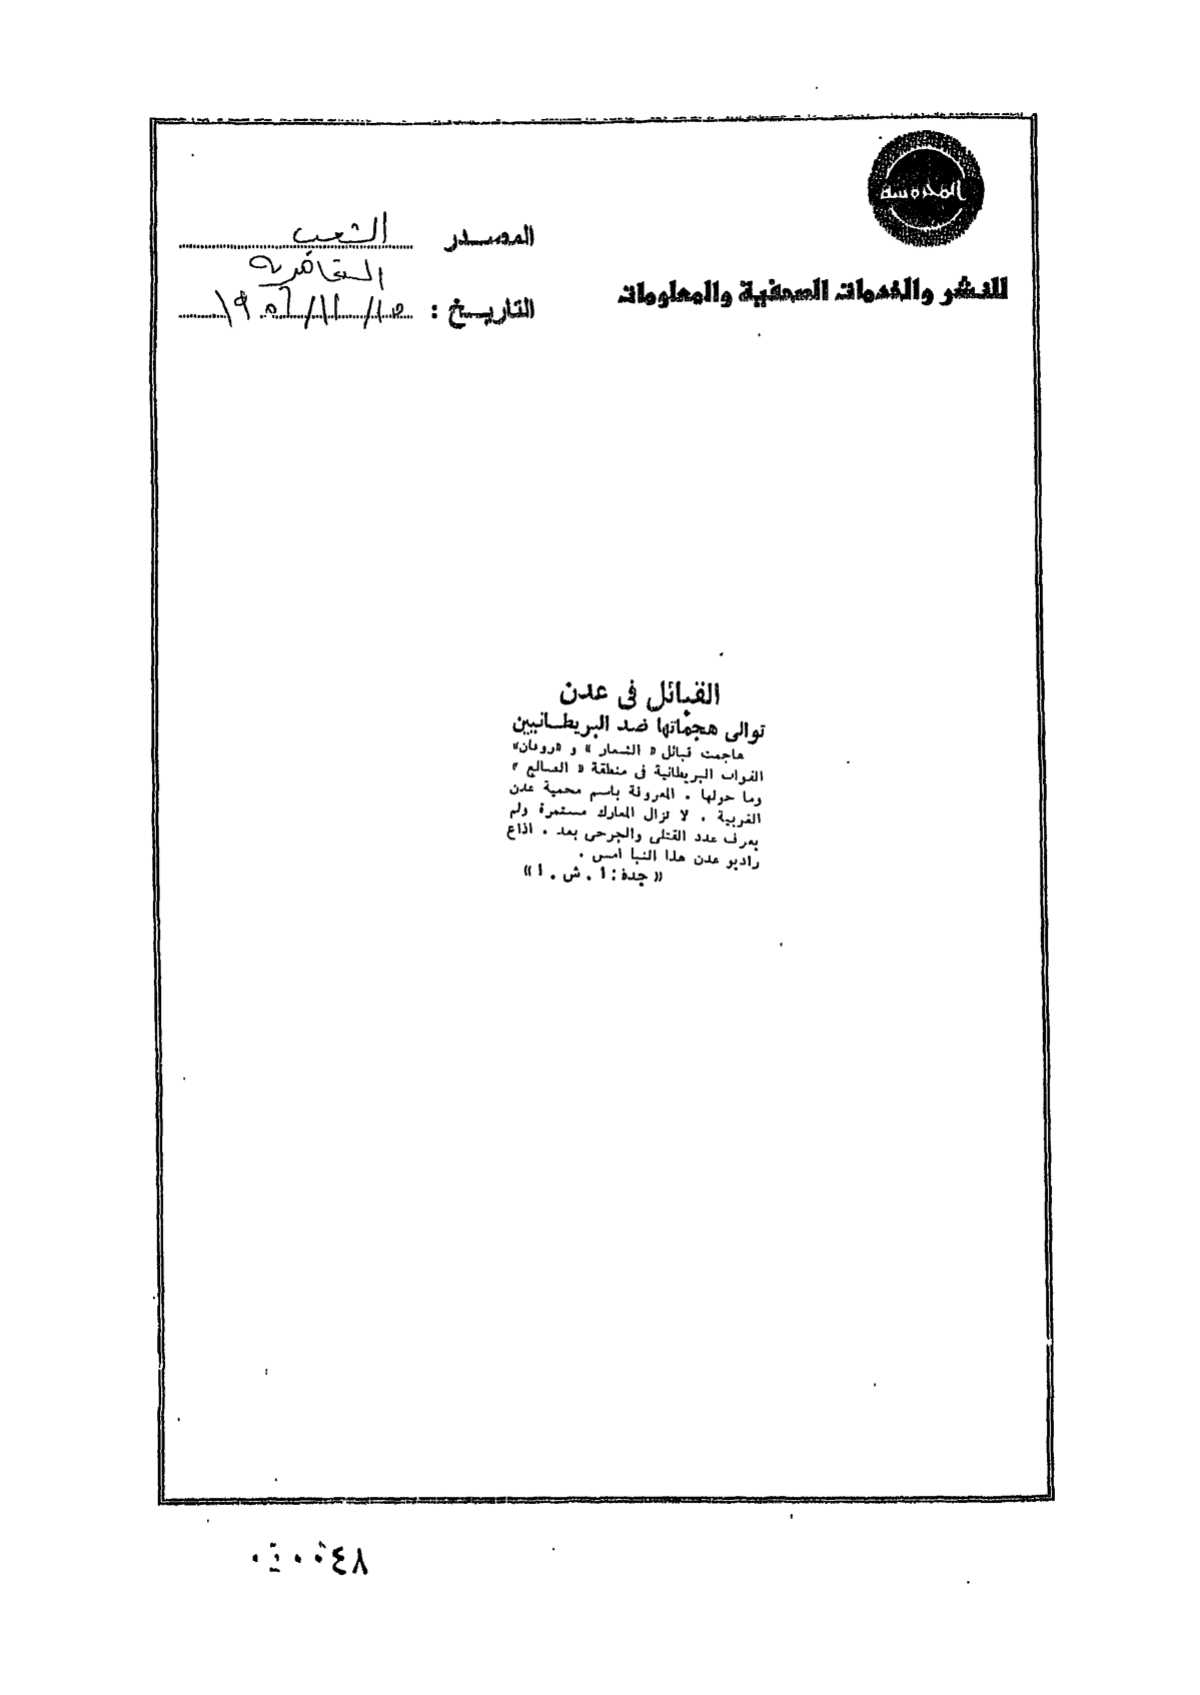 المحروسة
للنشر والخدمات الصحفية والمعلومات
المصدر الشعب
القاهرية
التاريخ : ١٩٥٦/١١/١٥
القبائل فى عدن
توالى هجماتها ضد البريطانيين
هاجمت قبائل « الشعار » و «ردفان»
القوات البريطانية فى منطقة « الضالع »
وما حولها . المعروفة باسم محمية عدن
الغربية . لا تزال المعارك مستمرة ولم
يعرف عدد القتلى والجرحى بعد . اذاع
راديو عدن هذا النبا امس .
« جدة : ا . ش . ا »
٤٨